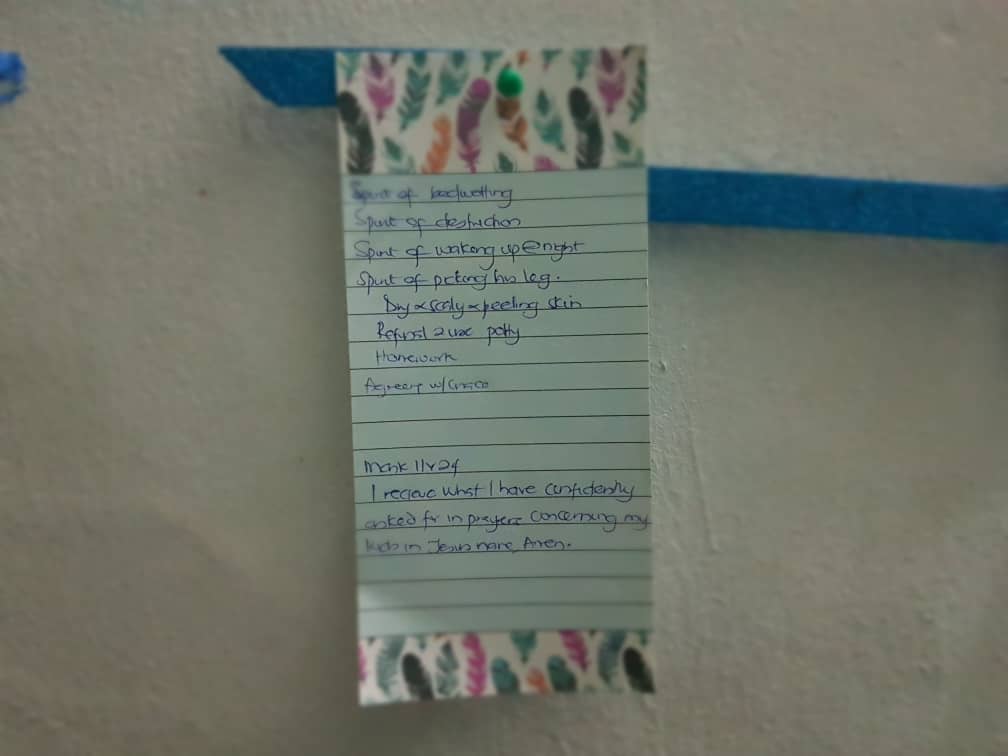 Spirit of bedwetting
Spirit of destruction
Spirit of waking up @ night
Spirit of picking his leg.
Dry & scaly & peeling skin
Refusal 2 use potty
Homework
w/
Mark 11v24
I recieve what I have confidently
asked for in prayers concerning my
kids in Jesus name, Amen.